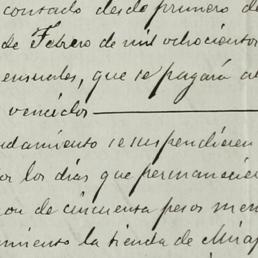 contado desde primero de
de Febrero de mil ochocientos
ensuales, que se pagará al
vencidos
udamiento se suspendieren
or los días que permanecier
on de cincuenta pesos men
amiento la tienda de Mirap